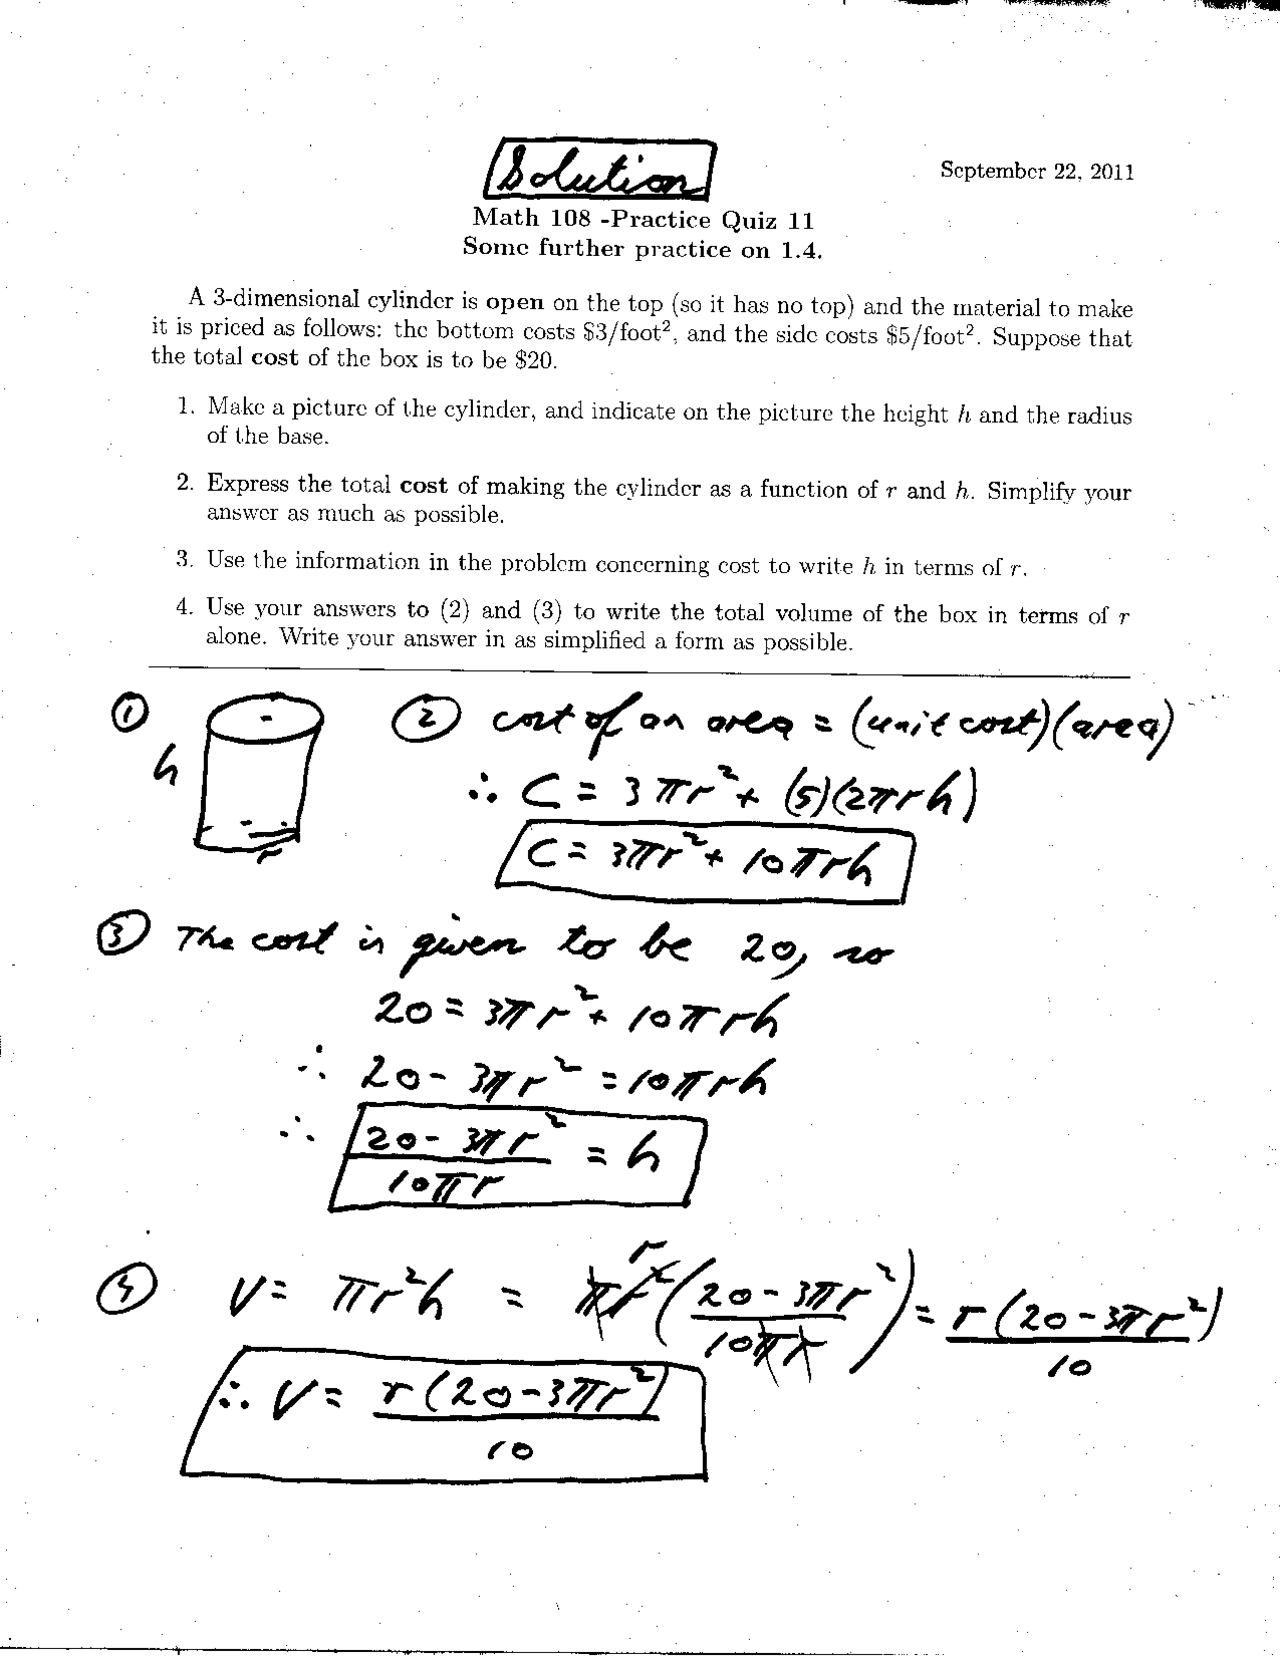 Solution
September 22, 2011
Math 108 -Practice Quiz 11
Some further practice on 1.4.
A 3-dimensional cylinder is open on the top (so it has no top) and the material to make
it is priced as follows: the bottom costs $3/foot², and the side costs $5/foot². Suppose that
the total cost of the box is to be $20.
1. Make a picture of the cylinder, and indicate on the picture the height h and the radius
of the base.
2. Express the total cost of making the cylinder as a function of r and h. Simplify your
answer as much as possible.
3. Use the information in the problem concerning cost to write h in terms of r.
4. Use your answers to (2) and (3) to write the total volume of the box in terms of r
alone. Write your answer in as simplified a form as possible.
① h r
② cost of an area = (unit cost)(area)
∴ C = 3πr² + (5)(2πrh)
C = 3πr² + 10πrh
③ The cost is given to be 20, so
20 = 3πr² + 10πrh
∴ 20 - 3πr² = 10πrh
∴ (20 - 3πr²)/(10πr) = h
④ V = πr²h = πr² r ((20 - 3πr²)/(10πr)) = r(20 - 3πr²)/10
∴ V = r(20 - 3πr²)/10